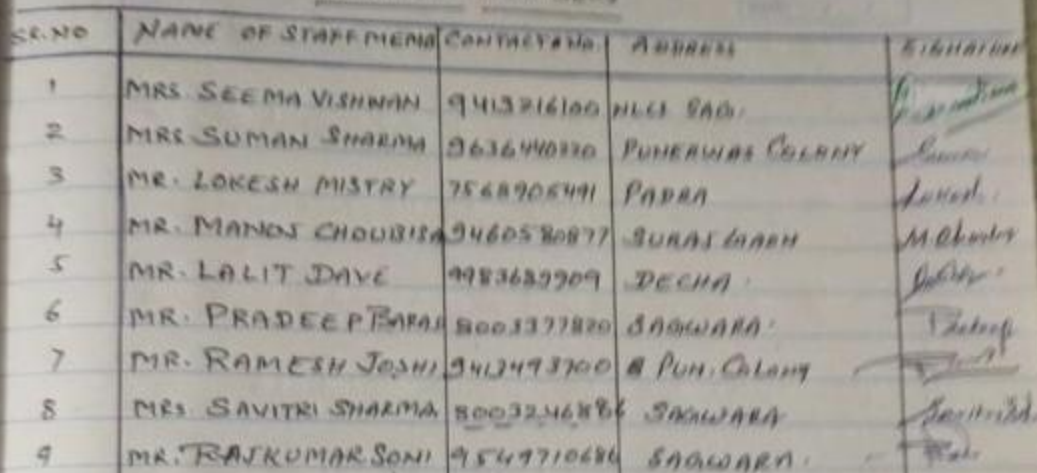 SR.NO NAME OF STAFF MEMB CONTACT NO. ADDRESS SIGNATURE
1 MRS SEEMA VISHWAN 9413216100
2 MRS SUMAN SHARMA 9636440220 PUNERWAS COLONY
3 MR. LOKESH MISTRY 7568906491 PADRA Lokesh
4 MR. MANOJ CHOUBISA 9460580877 SURAJGARH
5 MR. LALIT DAVE 9983689909 DECHA
6 MR. PRADEEP 8003377820 SAGWARA Pradeep
7 MR. RAMESH JOSHI 9413493700 PUN. COLONY
8 MRS SAVITRI SHARMA 8003246886 SAGWARA
9 MR. RAJKUMAR SONI 9549710686 SAGWARA